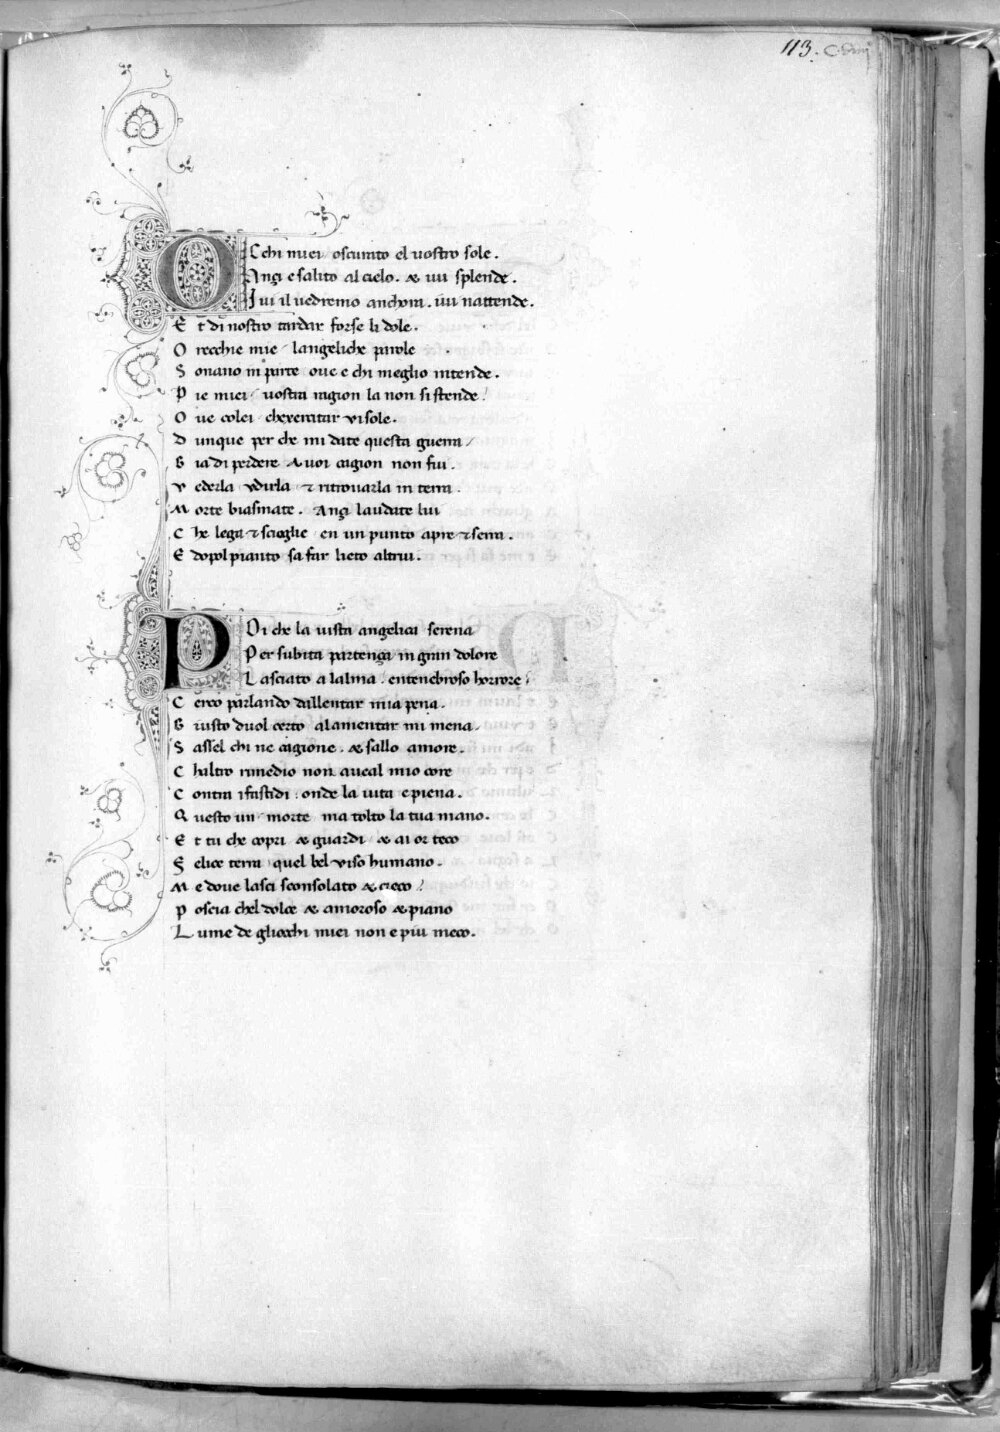 113. C.
OCchi miei oscurato el uostro sole.
Ançi e salito al cielo. & iui splende.
Iui il uedremo anchora. iui nattende.
Et di nostro tardar forse li dole.
Orecchie mie langeliche parole
Sonano in parte oue e chi meglio intende.
Pie miei uostra ragion la non si stende
Oue colei chexercitar vi sole.
Dunque per che mi date questa guerra
Gia di perdere a uoi cagion non fui.
Vederla vdirla & ritrouarla in terra.
Morte biasmate. Ançi laudate lui
Che lega & scioglie en un punto apre & serra.
E dopol pianto sa far lieto altrui.
POi che la uista angelica serena
Per subita partença in gran dolore
Lasciato a lalma. entenebroso horrore
Cerco parlando dallentar mia pena.
Giusto duol certo a lamentar mi mena.
Sassel chi ne cagione. & sallo amore.
Chaltro rimedio non aueal mio core
Contra i fastidi onde la uita e piena.
Questo un morte ma tolto la tua mano.
Et tu che copri & guardi & ai or teco
Felice terra quel bel viso humano.
Me doue lasci sconsolato & cieco
Poscia chel dolce & amoroso & piano
Lume de gliocchi miei non e piu meco.